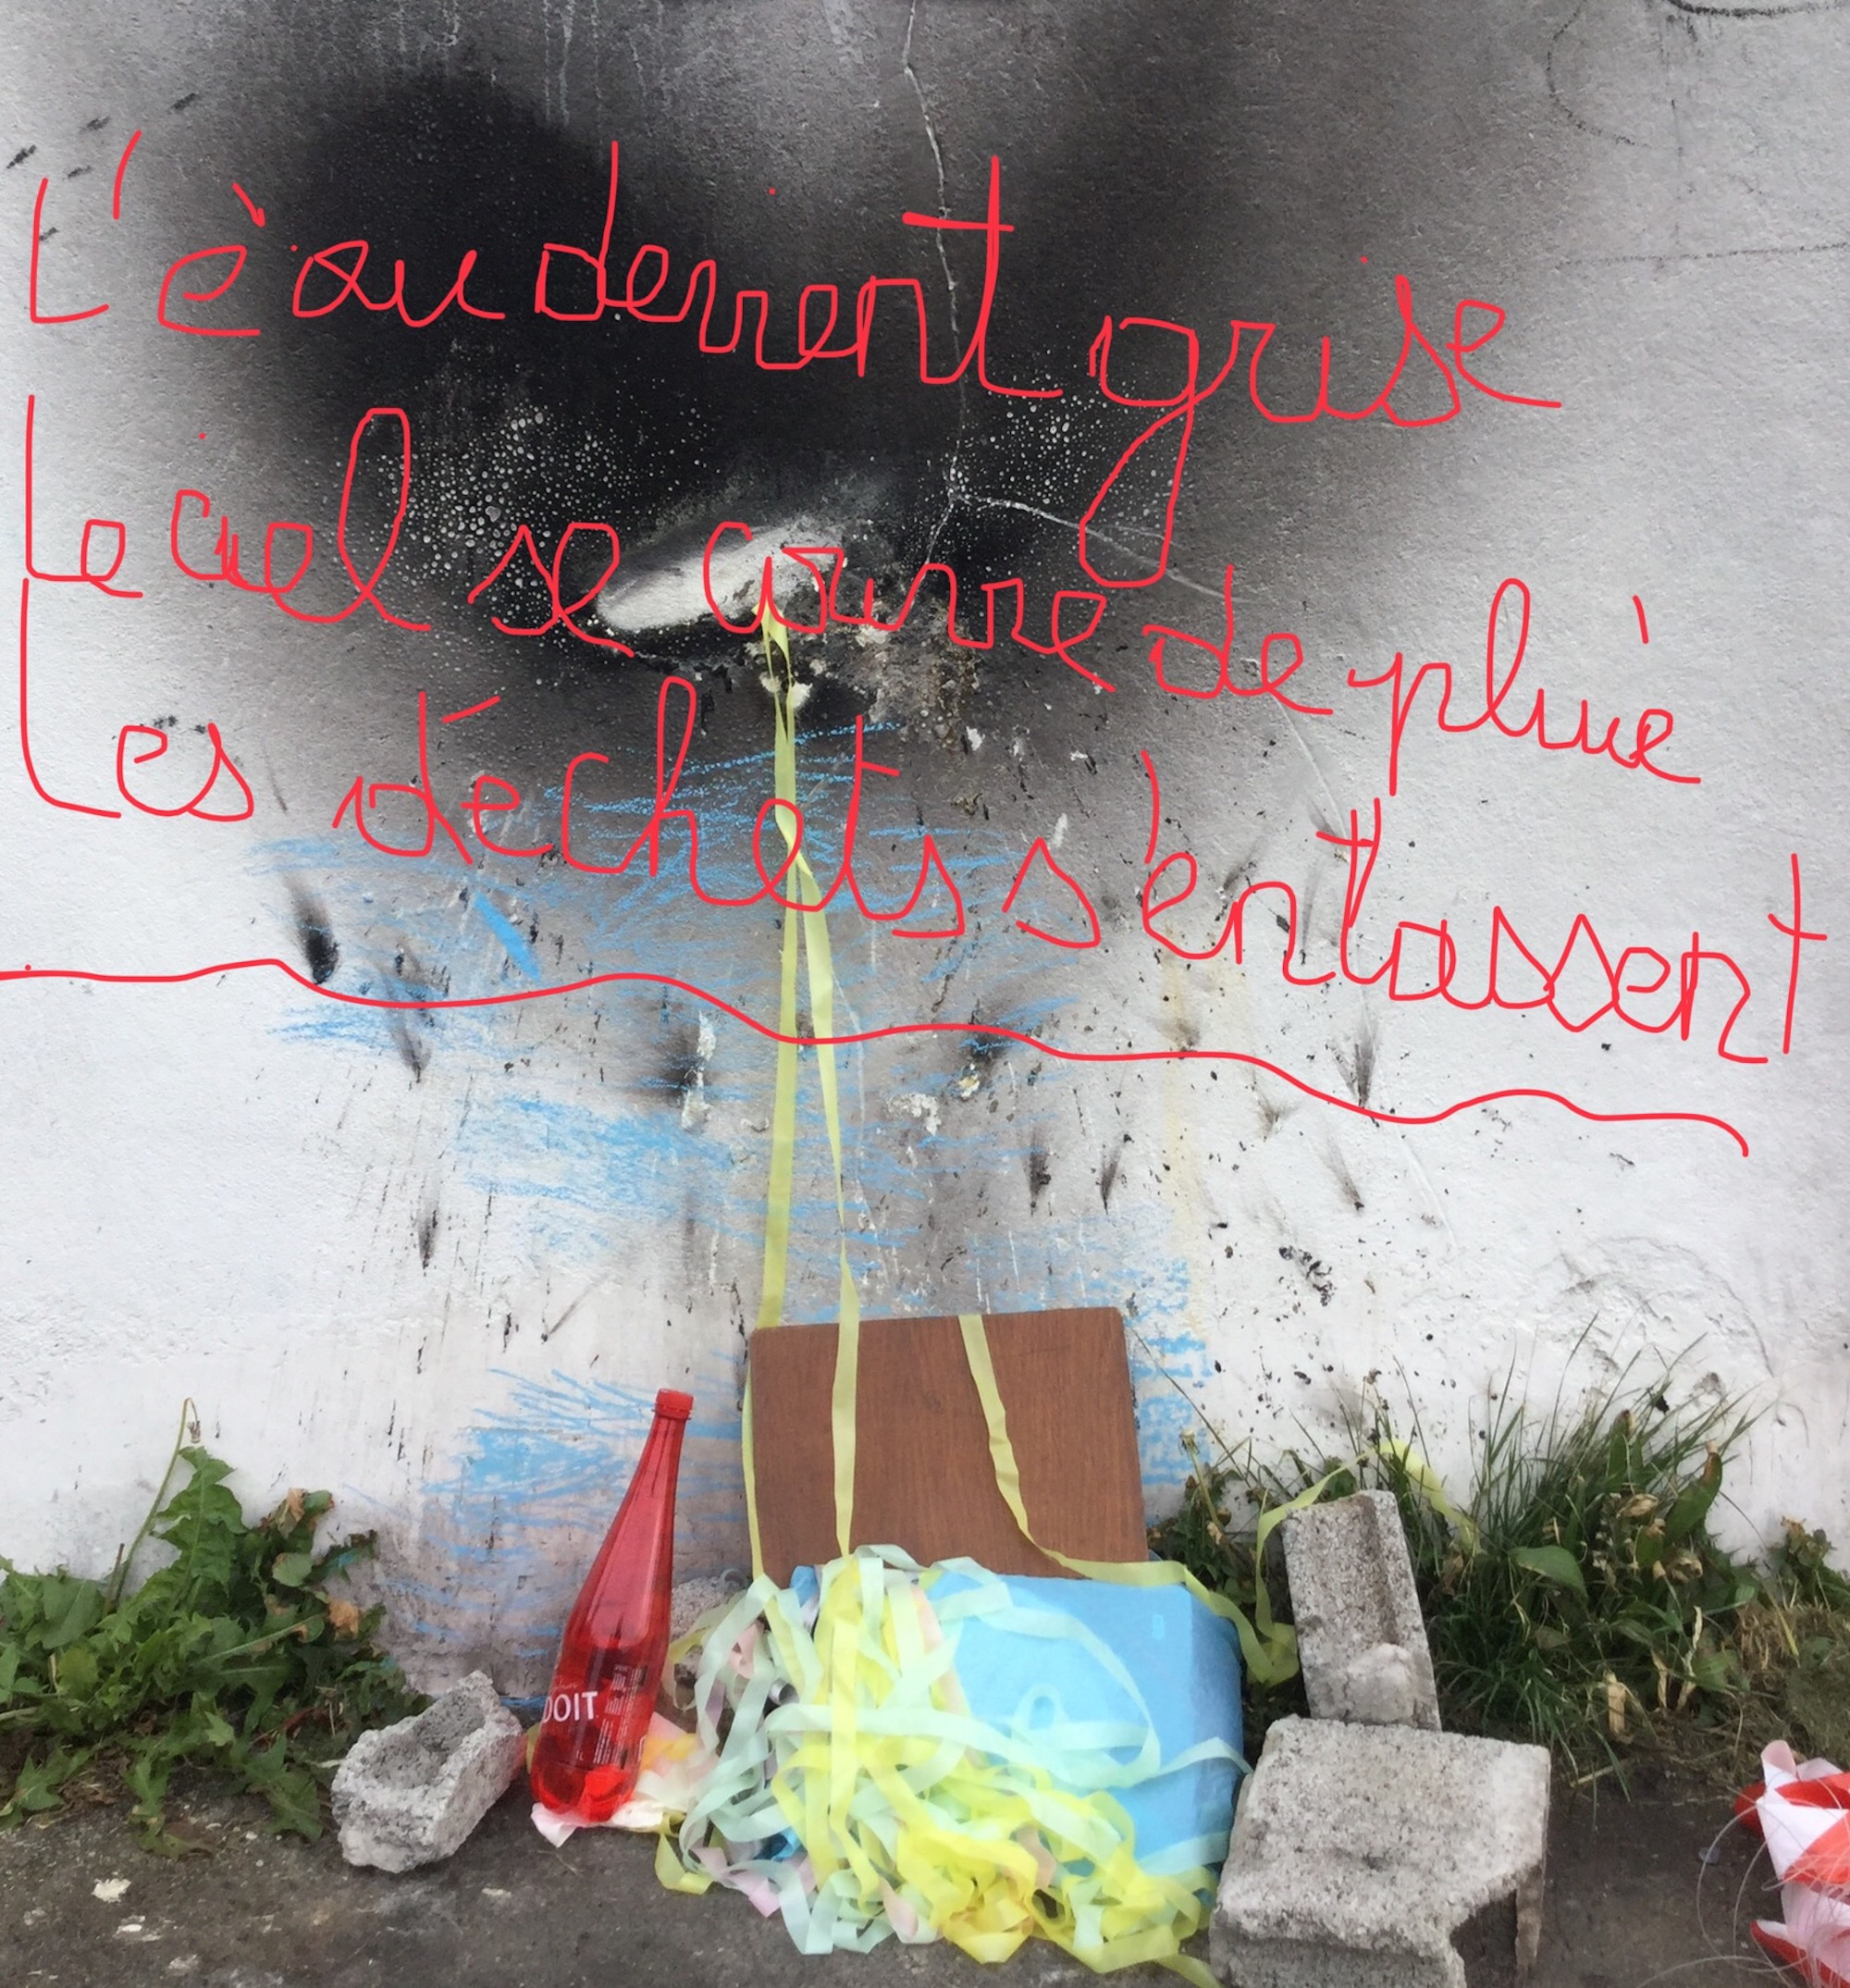 L'èau devient grise
Le ciel se couvre de pluie
Les déchets s'entassent
DOIT